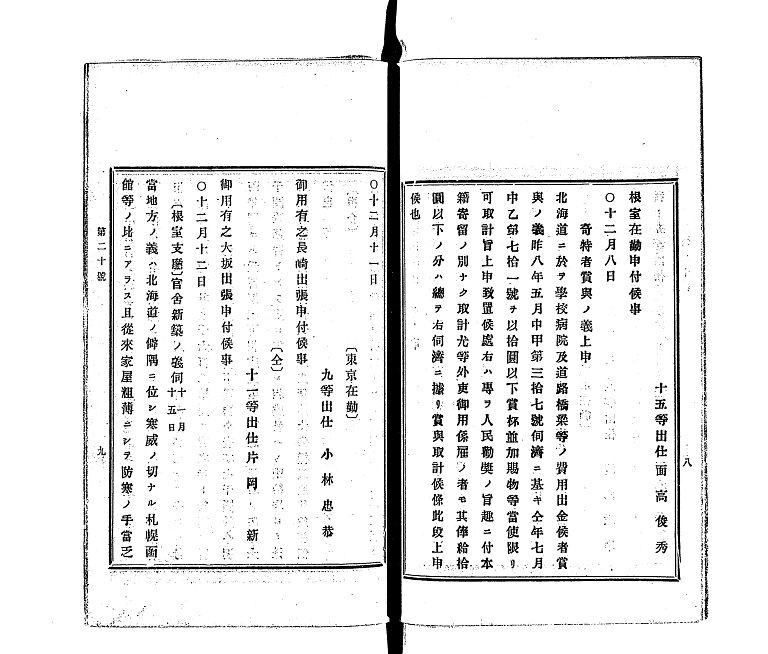 八
十五等出仕面高俊秀
根室在勤申付候事
〇十二月八日
奇特者賞與ノ義上申
北海道ニ於ヲ學校病院及道路橋梁等ノ費用出金候者賞
與ノ義昨八年五月中甲第三拾七號伺濟ニ基キ仝年七月
中乙第七拾一號ヲ以拾圓以下賞杯並加賜物等當使限リ
可取計旨上申致置候處右ハ專ヲ人民勸奬ノ旨趣ニ付本
籍寄留ノ別ナク取計尤等外東御用係雇ノ者モ其俸給拾
圓以下ノ分ハ總テ右伺濟ニ據リ賞與取計候條此段上申
候也
〇十二月十一日
〔東京在勤〕
九等出仕 小林忠恭
御用有之長崎出張申付候事
〔仝〕
十一等出仕片岡 新
御用有之大坂出張申付候事
〇十二月十二日
〔根室支廳〕官舍新築ノ義伺十一月十五日
當地方ノ義ハ北海道ノ僻隅ニ位シ寒威ノ切ナル札幌函
館等ノ比ニアラス且從來家屋粗薄ニシテ防寒ノ手當乏
第二十號
九